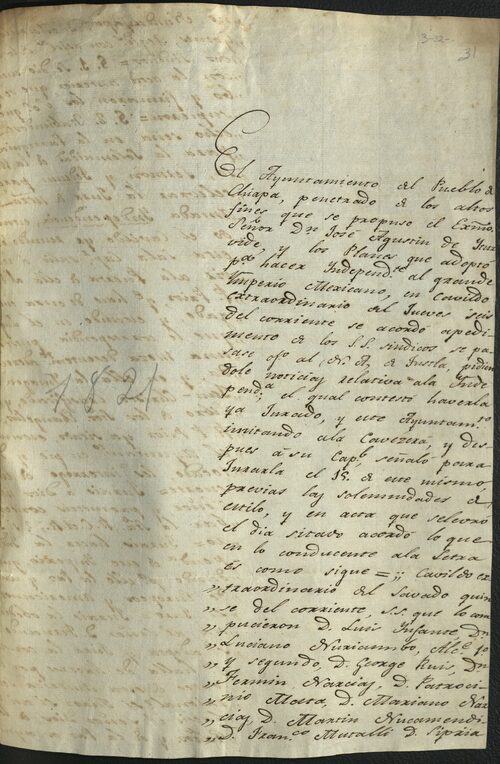 3-32-
31
El Ayuntamiento del Pueblo de
Chiapa, penetrado de los altos
fines que se propuso el Exmo.
Señor Dn José Agustin de Itur
vide, y los Planes que adopto
pa. hacer Independte. al grande
Imperio Mexicano, en Cavildo
extraordinario del Jueves seis
del corriente se acordo a pedi
mento de los S.S. sindicos se pa
sase ofo al de Tustla, pidien
dole noticias relativa ala Inde
penda. el qual contestó haverla
ya Jurado, y este Ayuntamto.
imitando ala Cavezera, y des
pues á su Capl, señaló para
Jurarla el 15. de este mismo
previas las solemnidades de
estilo, y en acta que selevró
el dia sitado acordó lo que
en lo conducente ala Letra
es como sigue = ,, Cavildo ex
,, traordinario del Savado quin
,, se del corriente, S.S. que lo com
,, pucieron D. Luis Infante, Dn
,, Luciano Nuriumbo, Alce. 1o
,, y segundo, D. George Ruis, Dn
,, Fermin Narcias, D. Patroci-
,, nio Mata, D. Mariano Nar
,, cias, D. Martin Nucamendi
,, D. Franco Mutalli D. Sipria
1821